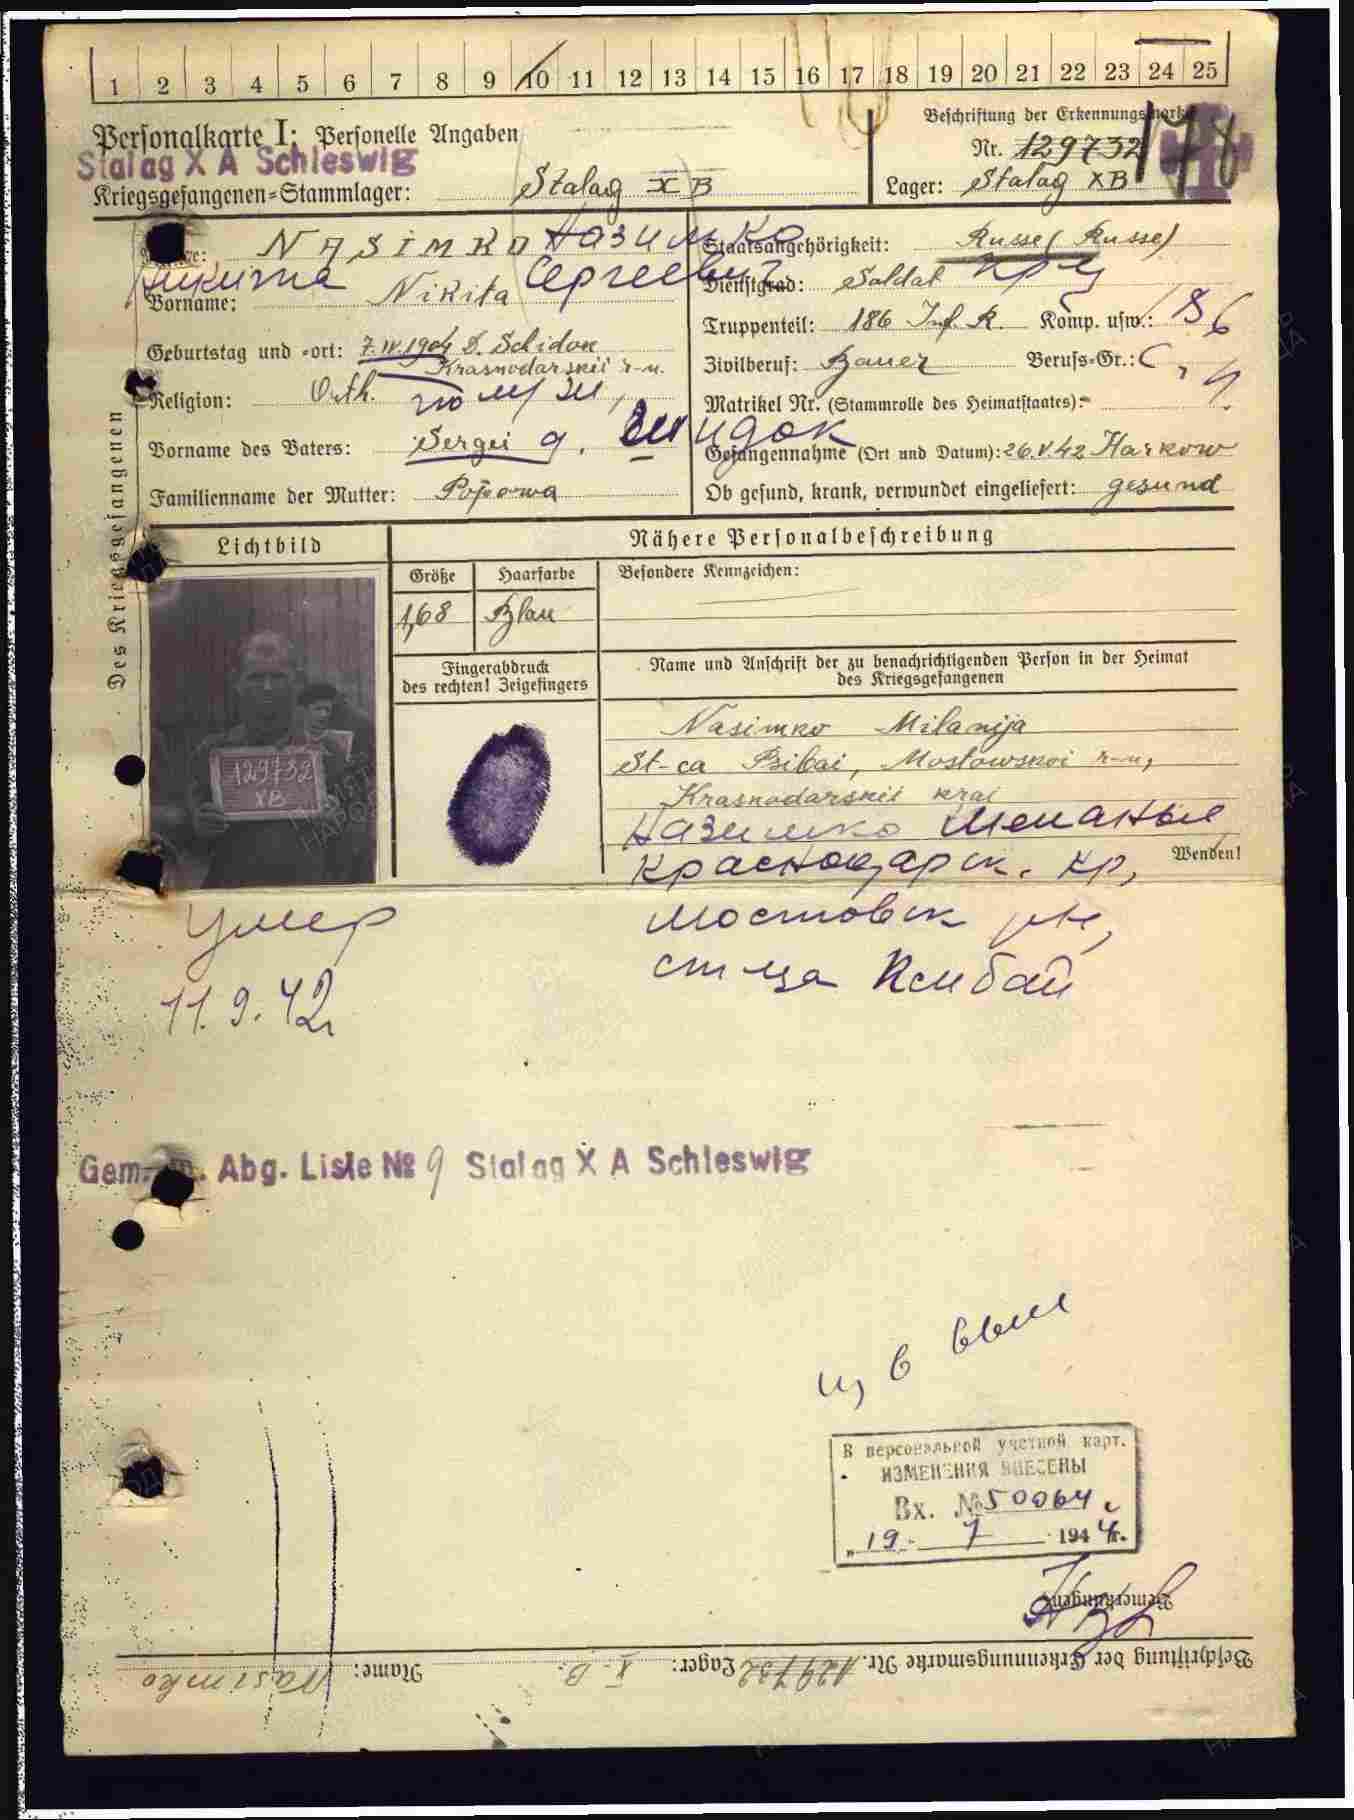 1 2 3 4 5 6 7 8 9 10 11 12 13 14 15 16 17 18 19 20 21 22 23 24 25
Personalkarte I: Personelle Angaben
Stalag X A Schleswig
Kriegsgefangenen-Stammlager: Stalag XB
Beschriftung der Erkennungsmarke
Nr. 129732
Lager: Stalag XB
178
Des Kriegsgefangenen
NASIMKO Назимко
Никита Сергеевич
Vorname: Nikita
Geburtstag und -ort: 7.IV.1904 D. Schidok
Krasnodarskii r-n.
Religion: Orth.
д. Шидок
Vorname des Vaters: Sergei
Familienname der Mutter: Popowa
Staatsangehörigkeit: Russe (Russe)
Dienstgrad: Soldat кр-ц
Truppenteil: 186 Inf. R. Komp. usw.:
Zivilberuf: Bauer Berufs-Gr.:
Matrikel Nr. (Stammrolle des Heimatstaates):
Gefangennahme (Ort und Datum): 26.V.42 Harkow
Ob gesund, krank, verwundet eingeliefert: gesund
Lichtbild
129732
XB
Nähere Personalbeschreibung
Größe Haarfarbe Besondere Kennzeichen:
1,68 Blau
Fingerabdruck
des rechten! Zeigefingers
Name und Anschrift der zu benachrichtigenden Person in der Heimat
des Kriegsgefangenen
Nasimko Milanija
St-ca Psibai, Mostowskoi r-n,
Krasnodarskii krai
Назимко Меланья
Краснодарск. кр,
Wenden!
мостовск р-н,
ст-ца Псибай
Умер
11.9.42
Gem. Abg. Liste № 9 Stalag X A Schleswig
В персональной учетной карт.
ИЗМЕНЕНИЯ ВНЕСЕНЫ
Вх. № 50064
„19" 7 194 г.
Bemerkungen:
Beschriftung der Erkennungsmarke Nr. 129732 Lager: X B. Name: Nasimko